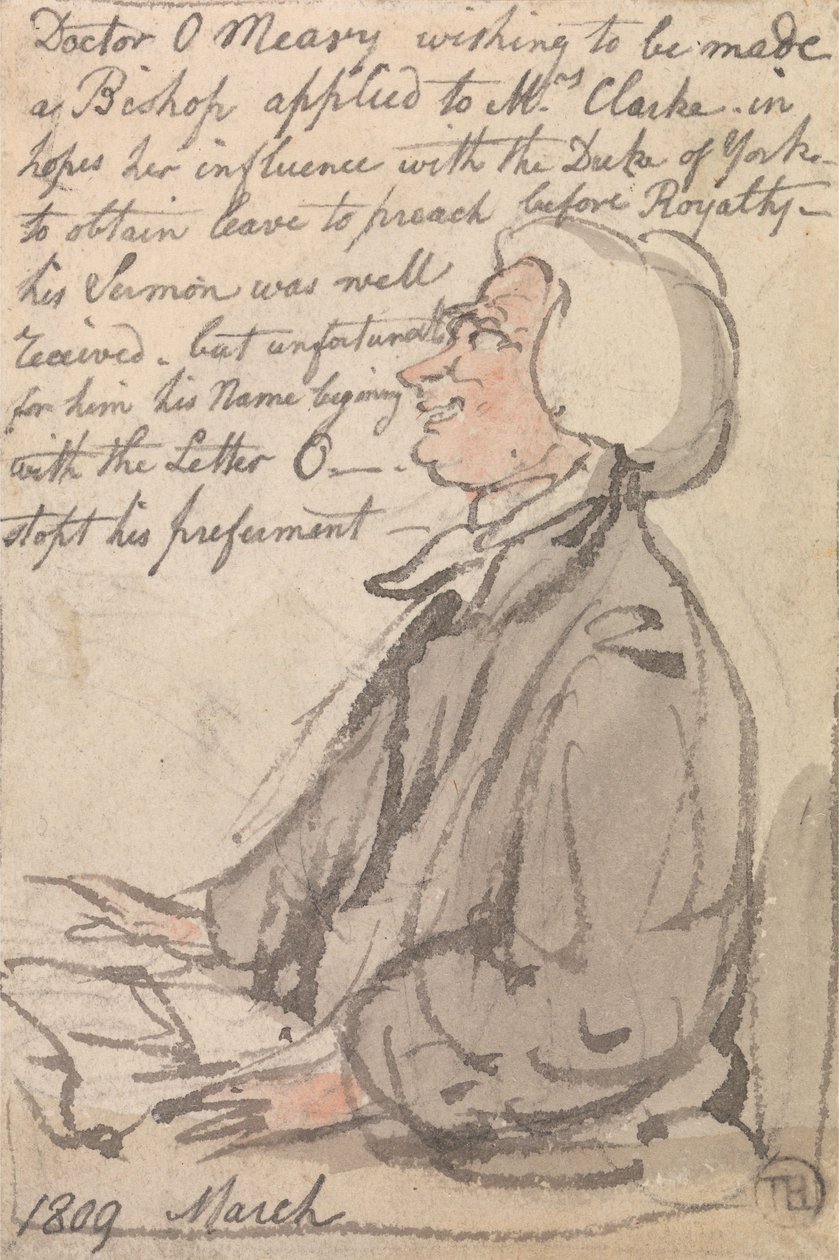 Doctor O Meary wishing to be made
a Bishop applied to Mrs Clarke - in
hopes her influence with the Duke of York -
to obtain leave to preach before Royalty -
his Sermon was well
received - but unfortunatly
for him his Name begining
with the Letter O —.
stopt his preferment —
1809 March
TH